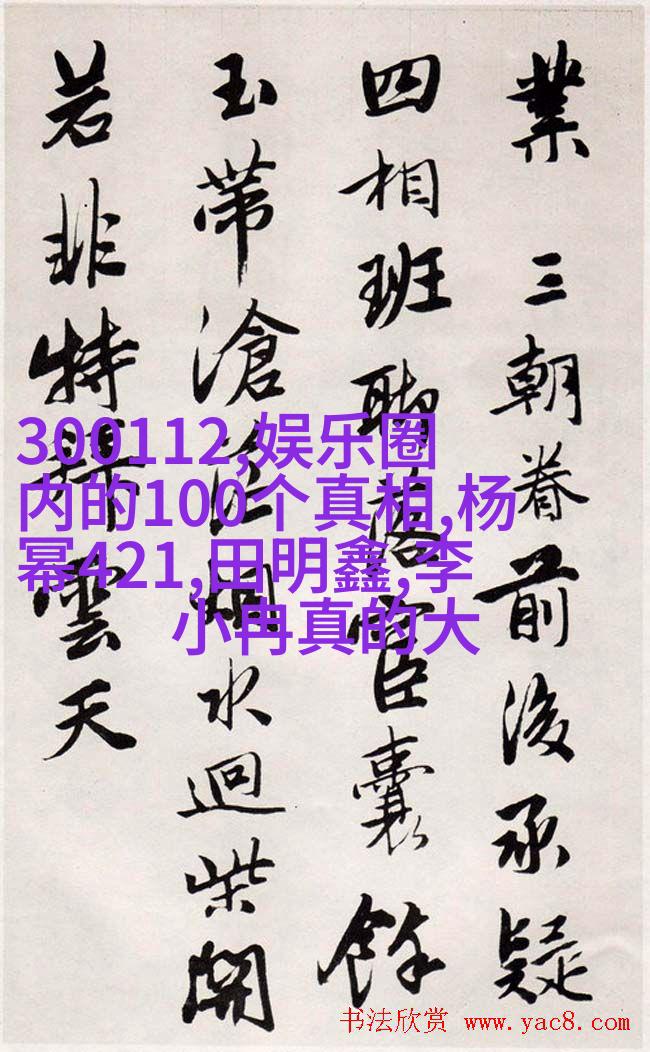 業 三朝眷前後承疑
四相班聯落宦囊餘
玉帶滄江烟水迴柴開
若非特雲天
300112,娱乐圈
内的100个真相,杨
幂421,田明鑫,李
小冉真的大
书法欣赏 www.yac8.com